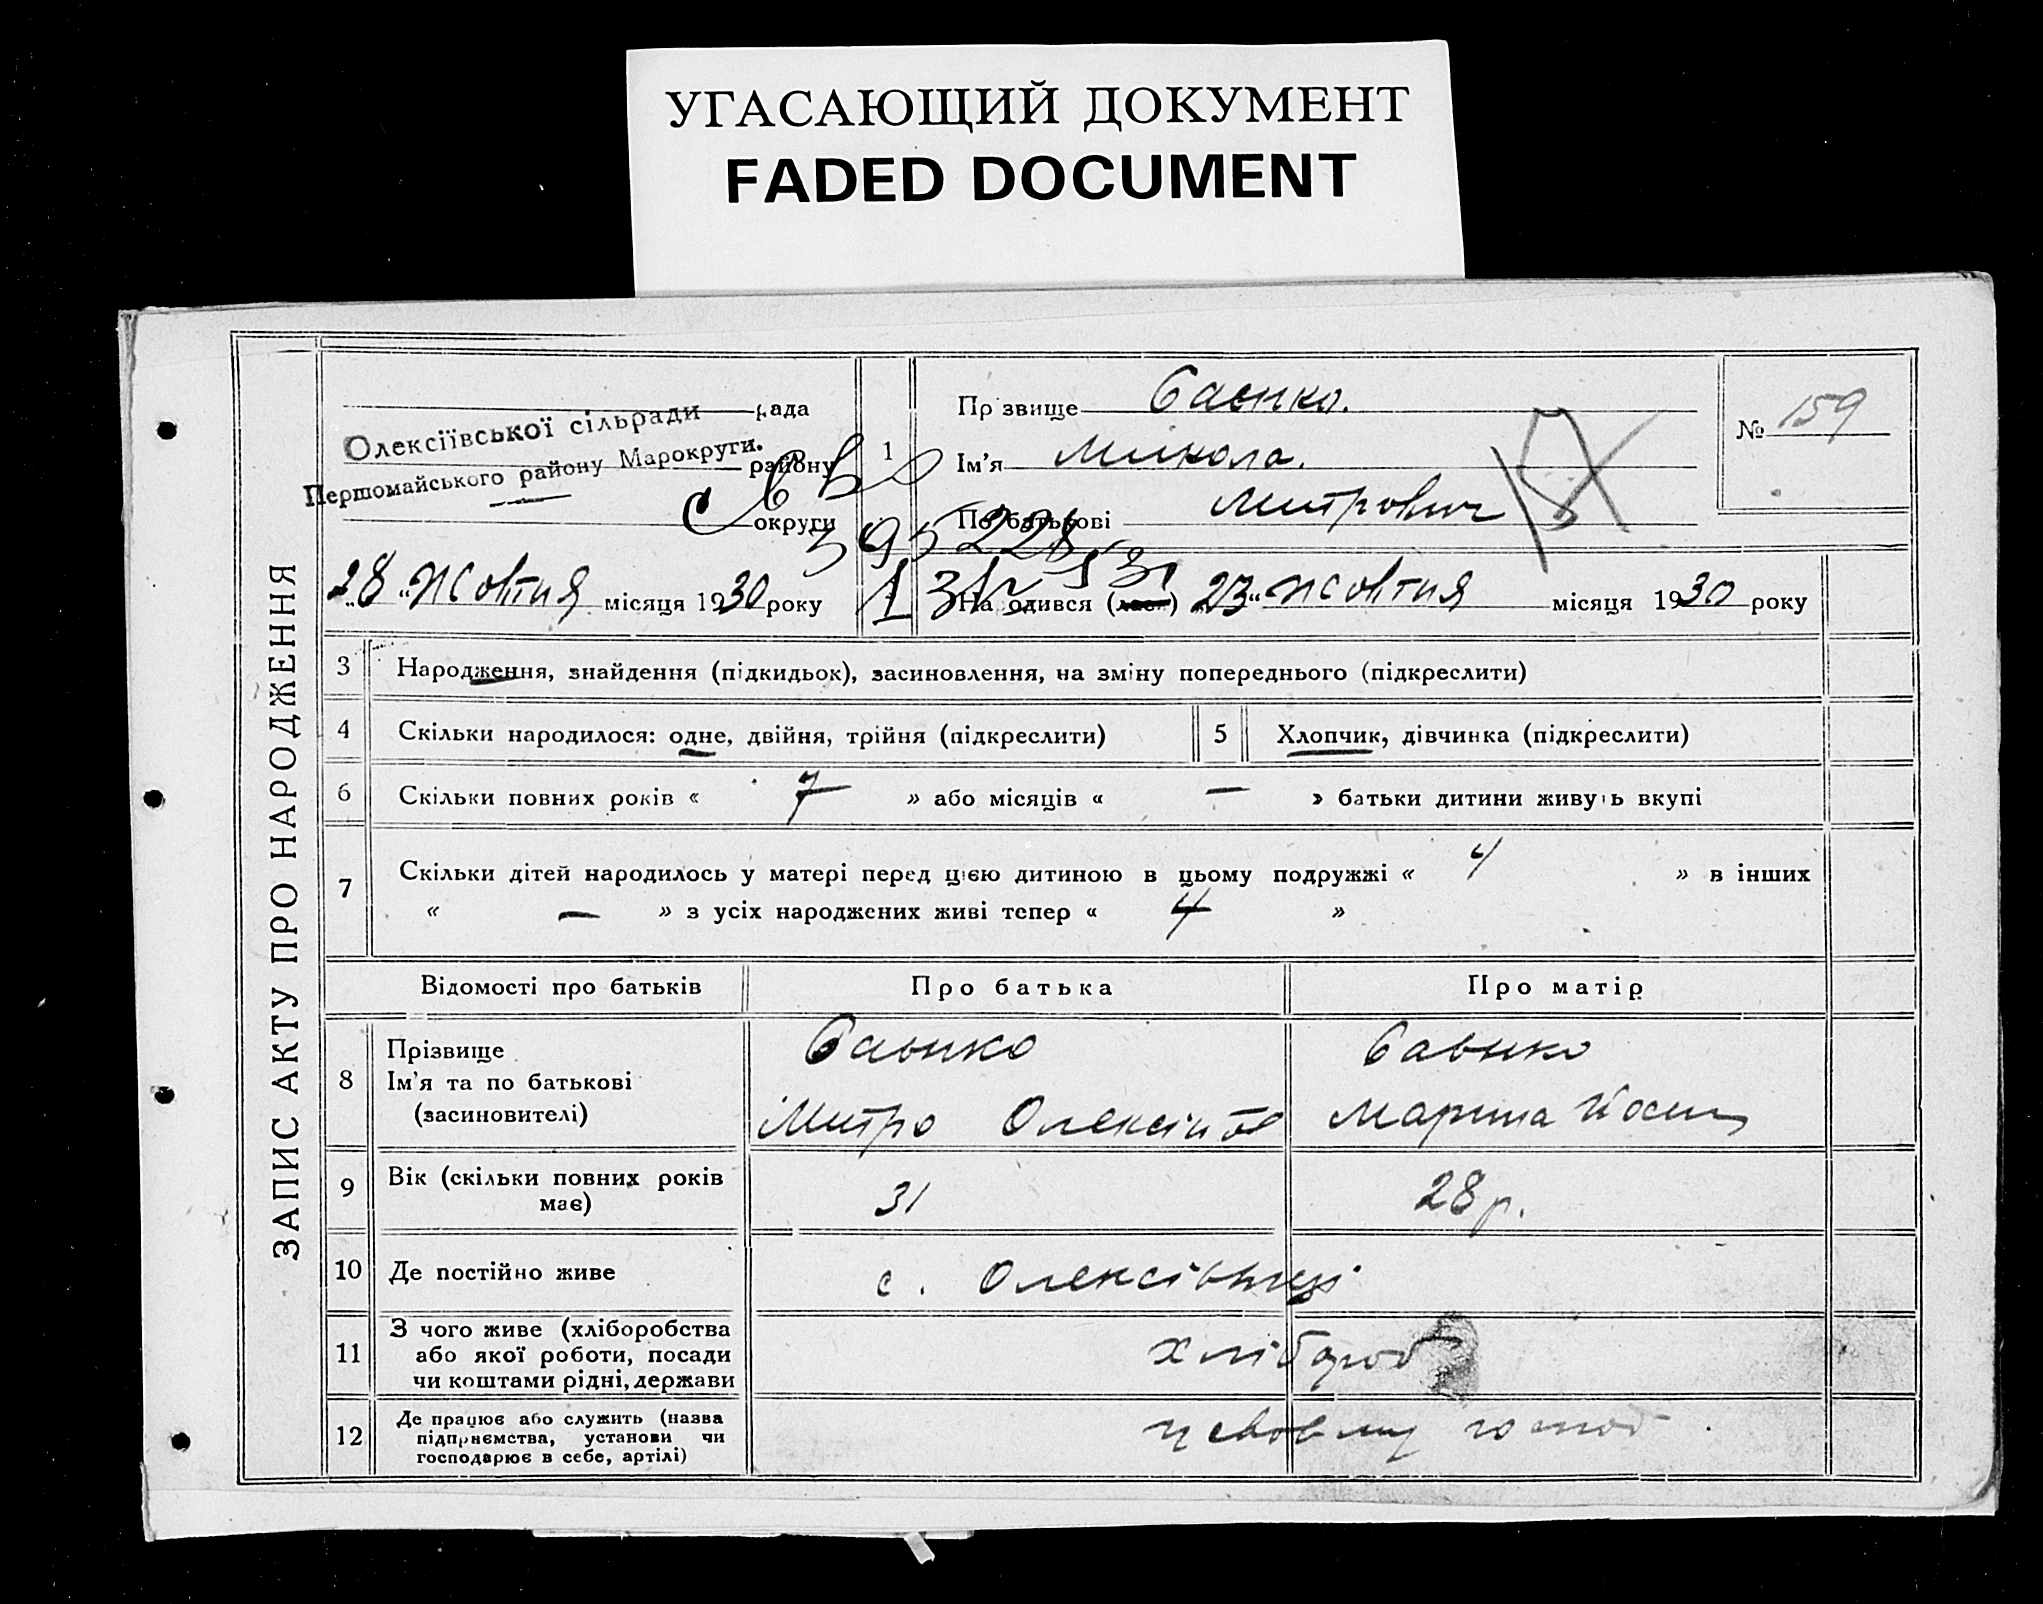 УГАСАЮЩИЙ ДОКУМЕНТ
FADED DOCUMENT
ЗАПИС АКТУ ПРО НАРОДЖЕННЯ
рада
Олексіївської сільради
району
Першомайського району Марокруги.
округи
1
Прізвище Саєнко.
Ім'я Микола.
По батькові Митрович
№ 159
595228
"28" жовтня місяця 1930 року
Народився (лась) "23" жовтня місяця 1930 року
3 Народження, знайдення (підкидьок), засиновлення, на зміну попереднього (підкреслити)
4 Скільки народилося: одне, двійня, трійня (підкреслити) 5 Хлопчик, дівчинка (підкреслити)
6 Скільки повних років « 7 » або місяців « — » батьки дитини живуть вкупі
7 Скільки дітей народилось у матері перед цією дитиною в цьому подружжі « 4 » в інших
« — » з усіх народжених живі тепер « 4 »
Відомості про батьків Про батька Про матір
8 Прізвище Саєнко Саєнко
Ім'я та по батькові
(засиновителі) Митро Марина
9 Вік (скільки повних років має) 31 28 р.
10 Де постійно живе с. Олексіївці
11 З чого живе (хліборобства
або якої роботи, посади
чи коштами рідні, держави хлібороб
12 Де працює або служить (назва
підприємства, установи чи
господарює в себе, артілі)